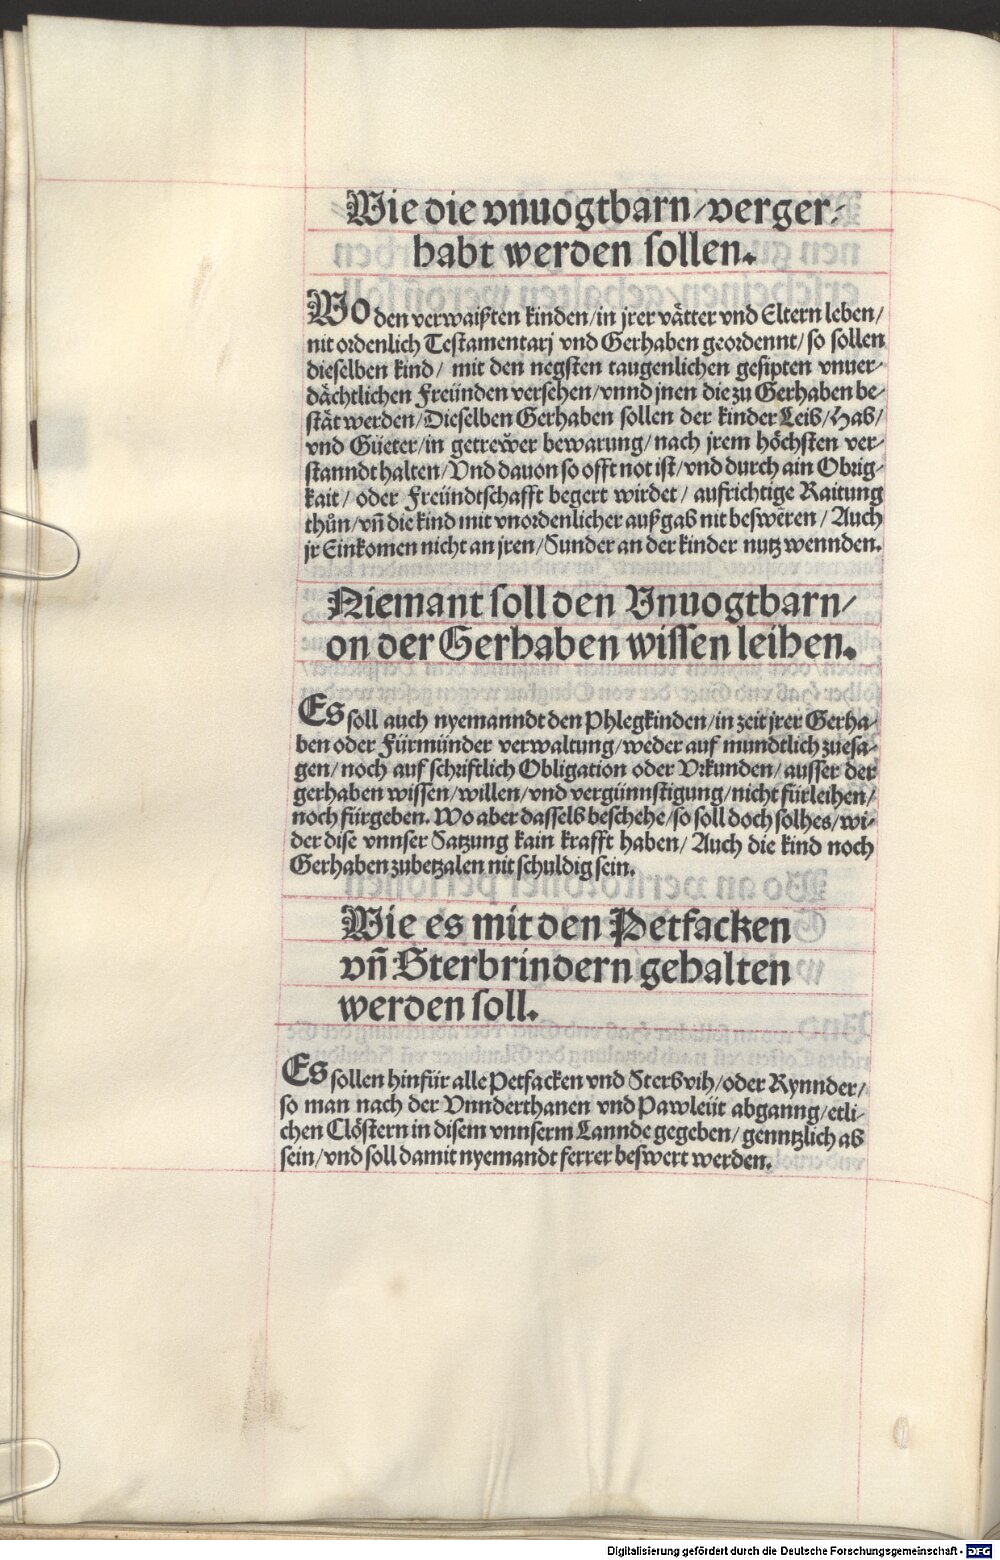 Wie die vnuogtbarn/verger-
habt werden sollen.
WO den verwaißten kinden/in jrer vätter vnd Eltern leben/
nit ordenlich Testamentarj vnd Gerhaben geordennt/so sollen
dieselben kind/ mit den negsten taugenlichen gesipten vnuer-
dächtlichen Freünden versehen/vnnd jnen die zu Gerhaben be-
stät werden/Dieselben Gerhaben sollen der kinder Leib/Hab/
vnd Güeter/in getreẅer bewarung/nach jrem höchsten ver-
stanndt halten/Vnd dauon so offt not ist/vnd durch ain Obrig-
kait/ oder Freündtschafft begert wirdet/ aufrichtige Raitung
thůn/vñ die kind mit vnordenlicher außgab nit beswëren/Auch
jr Einkomen nicht an jren/Sunder an der kinder nutz wennden.
Niemant soll den Vnuogtbarn/
on der Gerhaben wissen leihen.
Es soll auch nyemanndt den Phlegkinden/in zeit jrer Gerha-
ben oder Fürmünder verwaltung/weder auf mundtlich zuesa-
gen/noch auf schriftlich Obligation oder Vrkunden/ausser der
gerhaben wissen/willen/vnd vergünnstigung/nicht fürleihen/
noch fürgeben. Wo aber dasselb beschehe/so soll doch solhes/wi-
der dise vnnser Satzung kain krafft haben/Auch die kind noch
Gerhaben zubetzalen nit schuldig sein.
Wie es mit den Petfacken
vñ Sterbrindern gehalten
werden soll.
Es sollen hinfür alle Petfacken vnd Sterbvih/oder Rynnder/
so man nach der Vnnderthanen vnd Pawleüt abganng/etli-
chen Clöstern in disem vnnserm Lannde gegeben/genntzlich ab
sein/vnd soll damit nyemandt ferrer beswert werden.
Digitalisierung gefördert durch die Deutsche Forschungsgemeinschaft - DFG